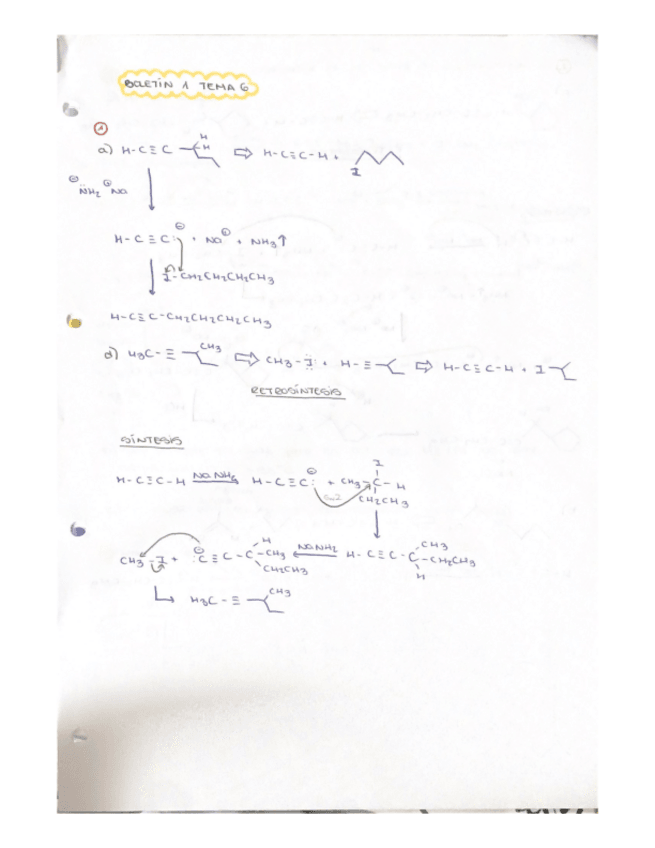 BOLETÍN 1 TEMA 6
1
a) H-C≡C H H ⇨ H-C≡C-H + I
⊖ N̈H₂ ⊕ Na
H-C≡C:⊖ + Na⊕ + NH₃↑
I-CH₂CH₂CH₂CH₃
H-C≡C-CH₂CH₂CH₂CH₃
d) H₃C-≡ CH₃ ⇨ CH₃-I + H-≡ ⇨ H-C≡C-H + I
RETROSÍNTESIS
SÍNTESIS
H-C≡C-H → H-C≡C:⊖ + CH₃-C-H I CH₂CH₃
CH₃-I + ⊖:C≡C-C-CH₃ H CH₂CH₃ ← NaNH₂ H-C≡C-C-CH₂CH₃ CH₃ H
H₃C-≡ CH₃